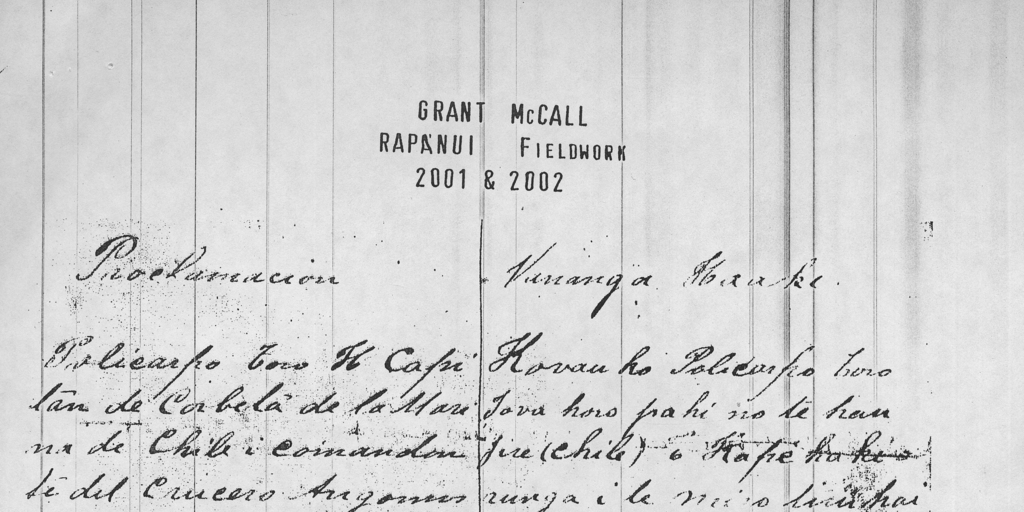 GRANT McCALL
RAPANUI FIELDWORK
2001 & 2002
Proclamacion
Vananga Haake
Policarpo Toro H Capi
tan de Corbeta de la Mari
na de Chile i comandan
te del Crucero Angamos
Kovau ko Policarpo Toro
pahi no te hau
(Chile) o
runga i te miro